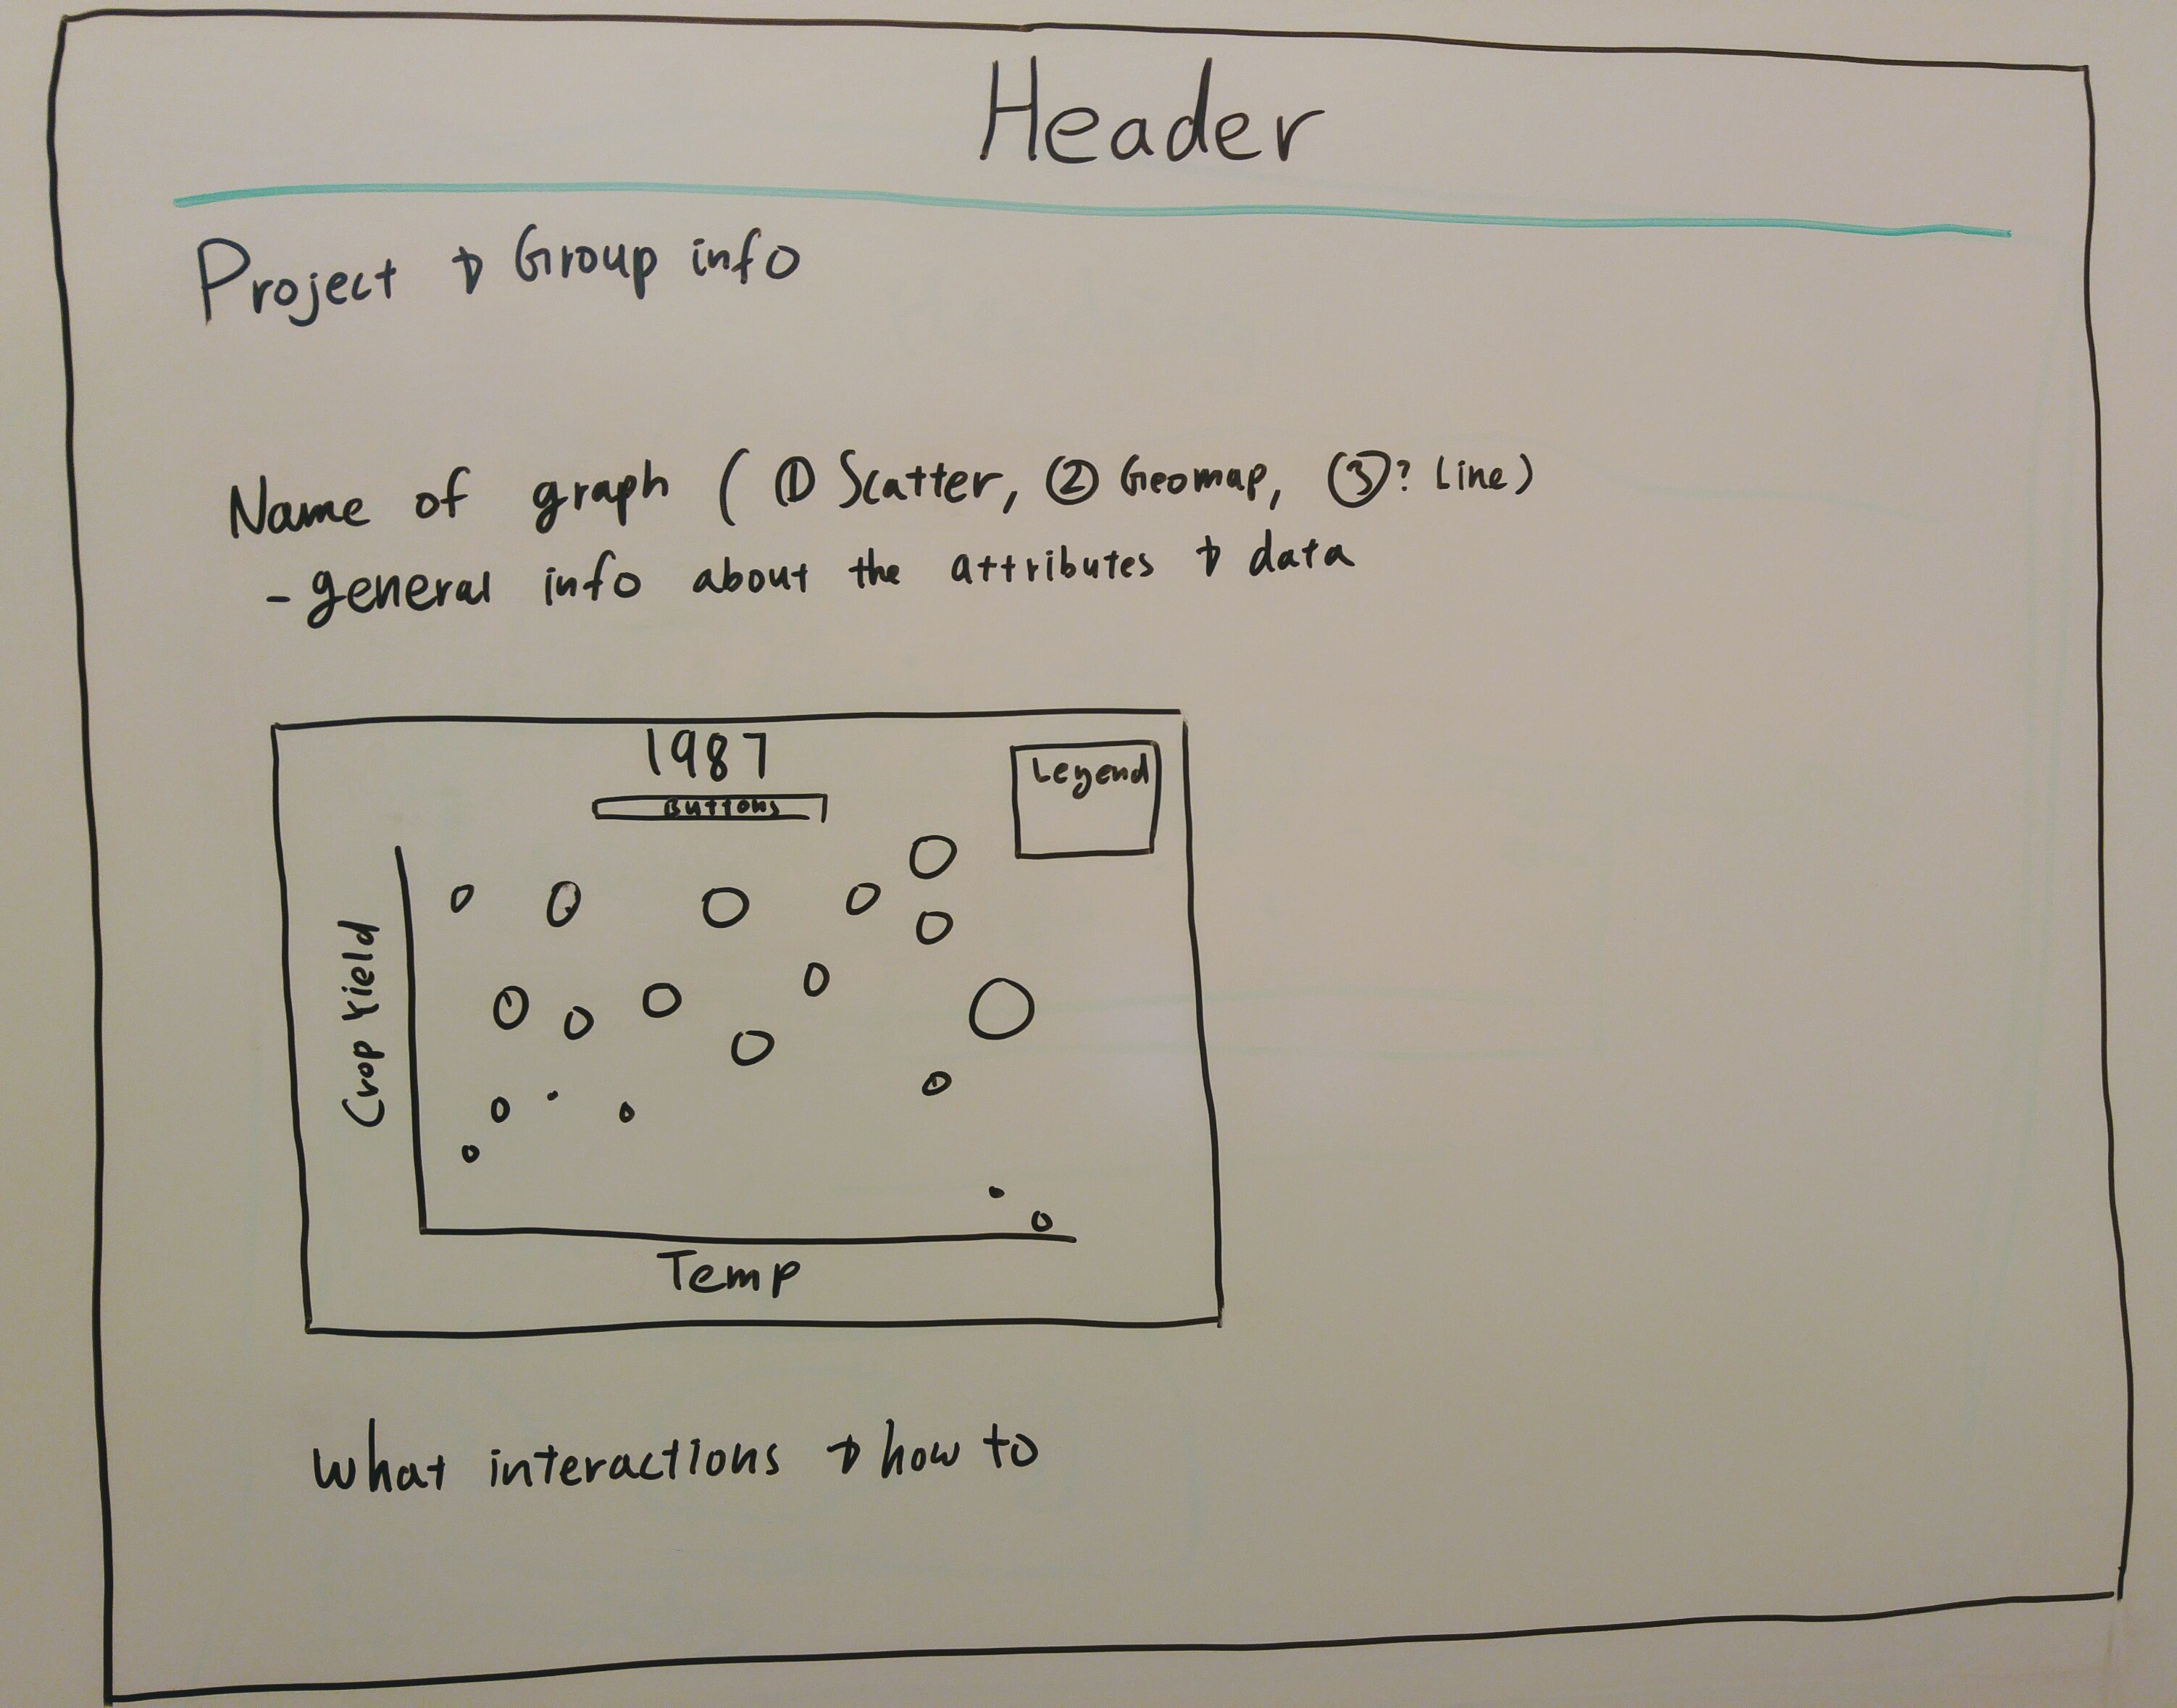 Header
Project & Group info
Name of graph ( ① Scatter, ② Geomap, ③? Line)
- general info about the attributes & data
1987
Buttons
Legend
Crop Yield
Temp
What interactions & how to